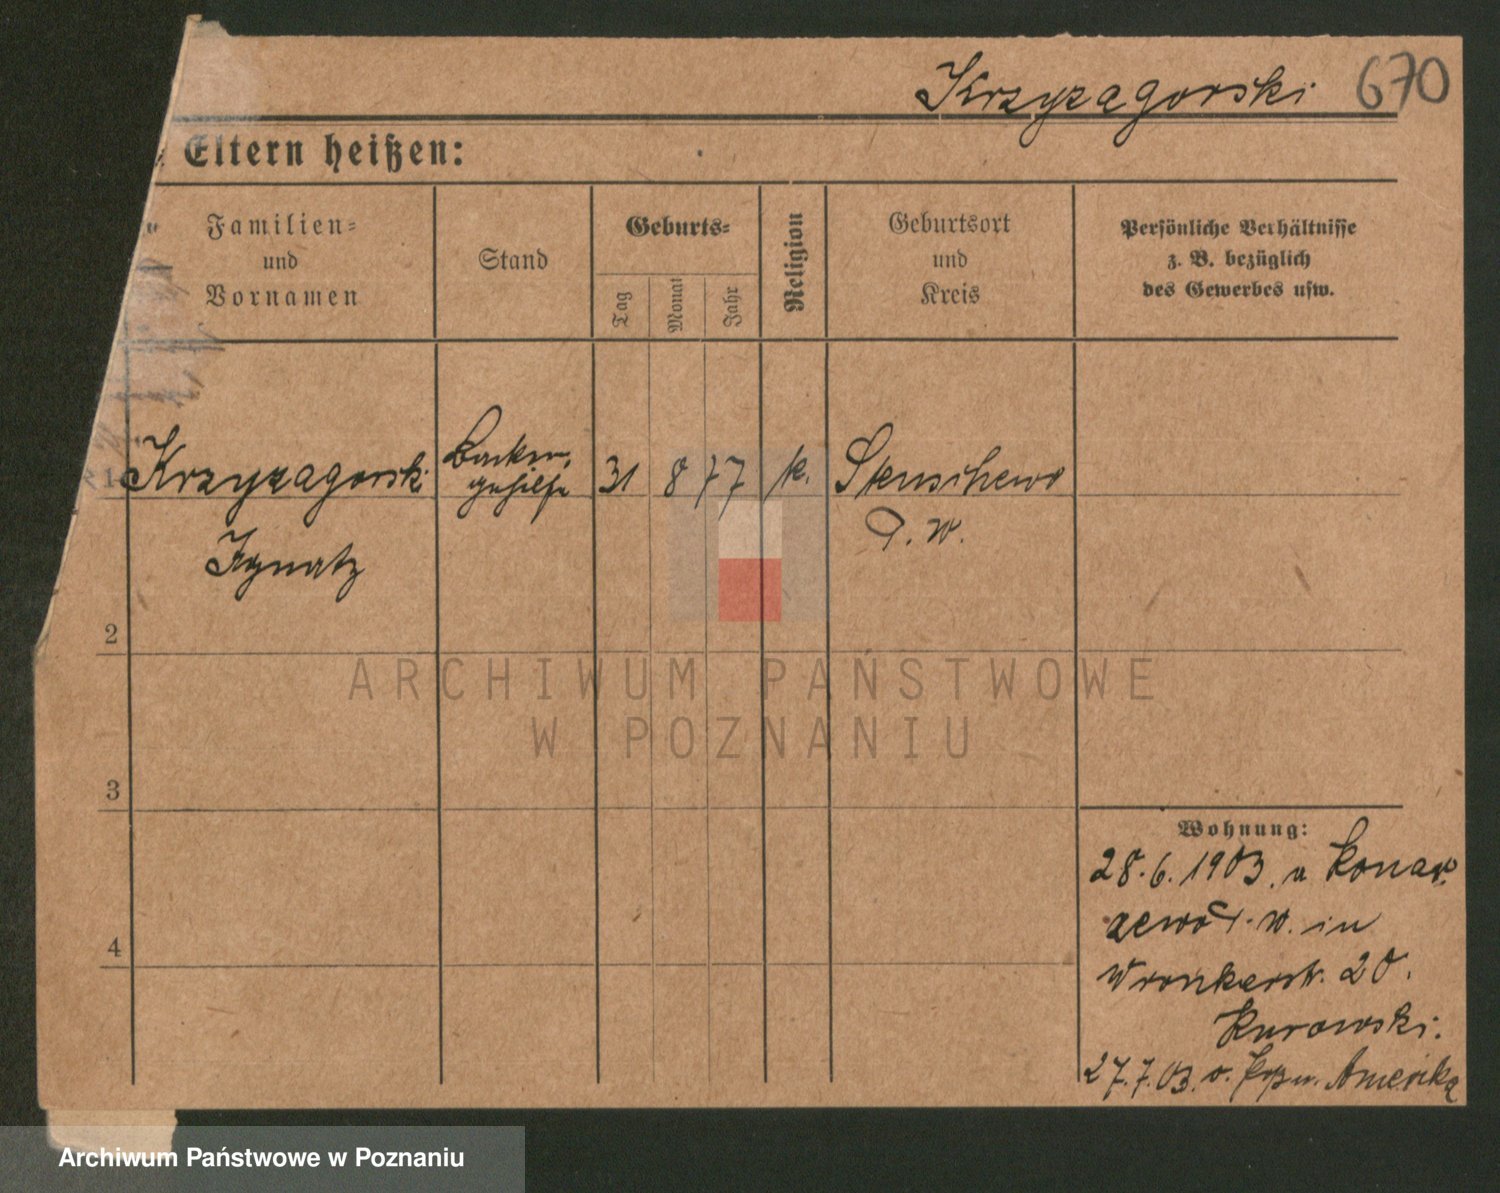 Krzyzagorski 670
Eltern heißen:
Familien=
und
Vornamen
Stand
Geburts=
Tag
Monat
Jahr
Religion
Geburtsort
und
Kreis
Persönliche Verhältnisse
z. B. bezüglich
des Gewerbes usw.
1 Krzyzagorski
Ignatz
gehilfe
31 8 77 k.
Stenschewo
P. W.
2
3
4
Wohnung:
28.6.1903. a
P. W. in
Wronkerstr. 20.
Kurowski.
27.7.03. Amerika
ARCHIWUM PAŃSTWOWE
W POZNANIU
Archiwum Państwowe w Poznaniu